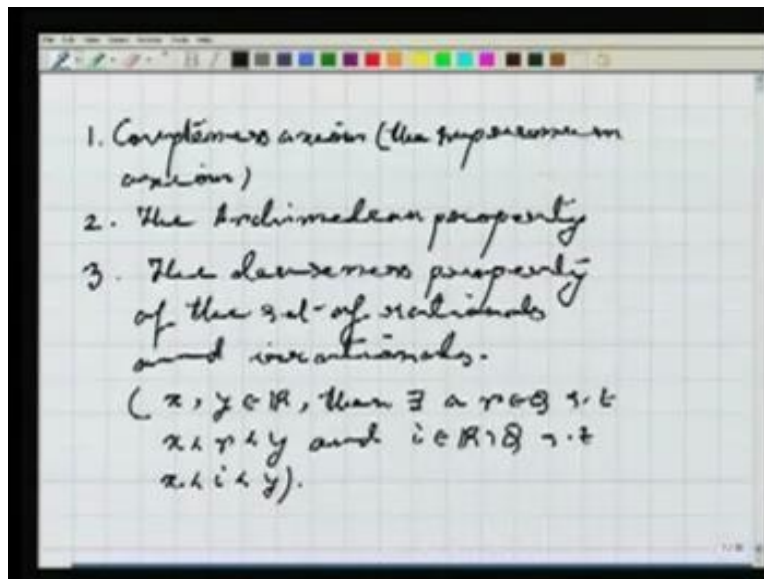 1. Completeness axiom (the supremum
axiom)
2. The Archimedean property
3. The denseness property
of the set of rationals
and irrationals.
( x, y ∈ ℝ, then ∃ a r ∈ ℚ s.t
x < r < y and i ∈ ℝ \ ℚ s.t
x < i < y).